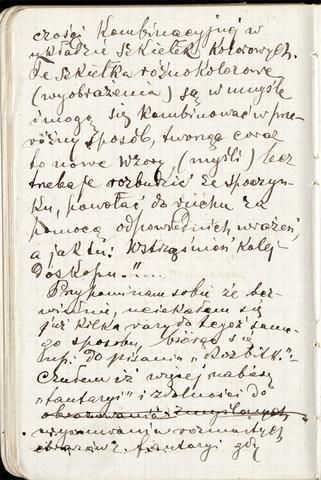 czości kombinacyjnej w
układzie szkiełek kolorowych.
Te szkiełka różnokolorowe
(wyobrażenia) są w umyśle
i mogą się kombinować w prze
różny sposób, tworząc coraz
to nowe wzory, (myśli) lecz
trzeba je rozbudzić ze spoczyn-
ku, powołać do ruchu za
pomocą odpowiednich wrażeń,
a jakim: wstrząśnień kalej
doskopu."....
Przypominam sobie że bez-
wiednie, uciekałem się
już kilka razy do tegoż same-
go sposobu, biorąc się
np. do pisania "Rozbitk.":
Czułem iż więcej nabieram
"fantazyi" i zdolności do
obrazowania
wysnuwania rozmaitych
obrazów z fantazyi gdy